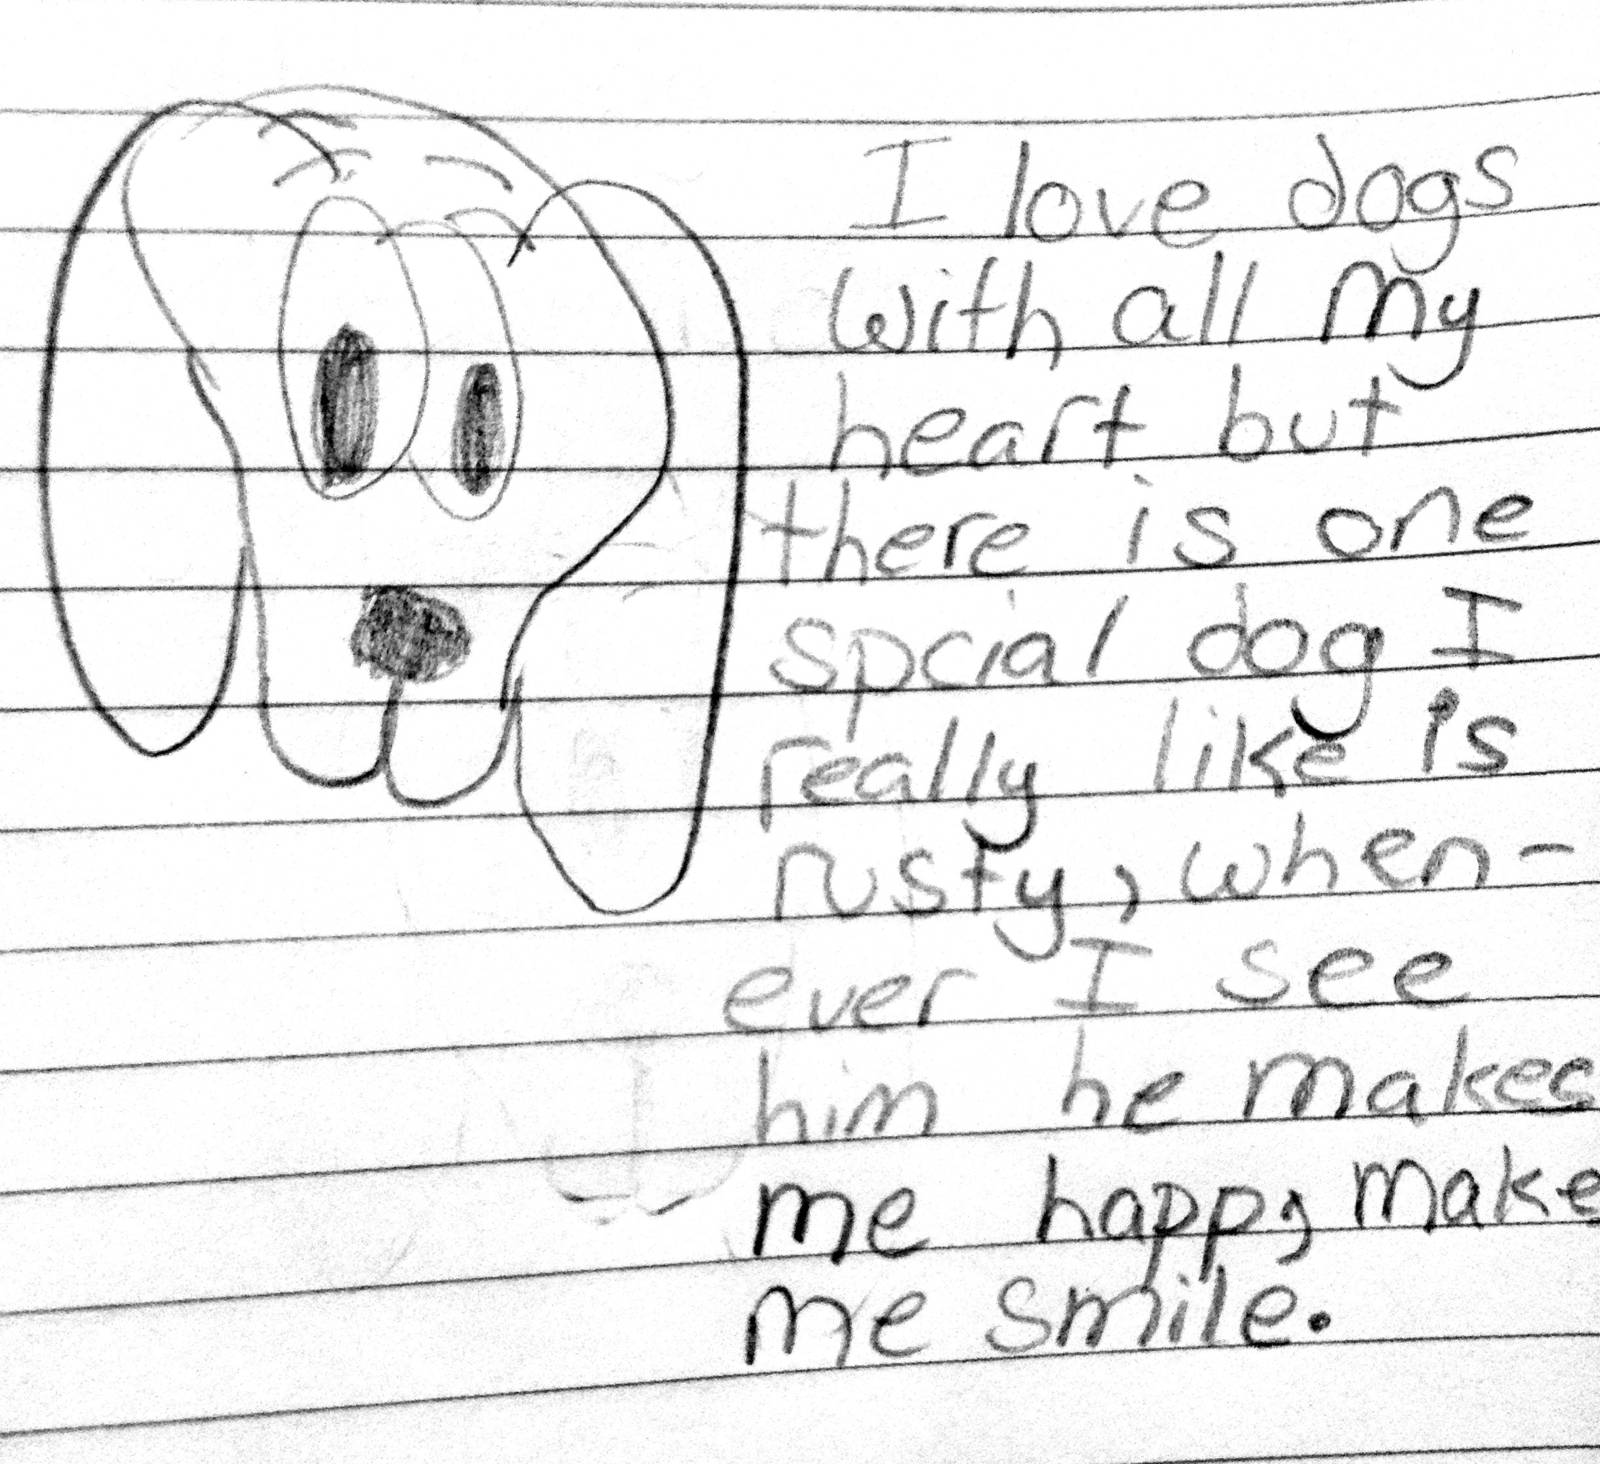 I love dogs
with all my
heart but
there is one
spcial dog I
really like is
rusty, when-
ever I see
him he makes
me happ, make
me smile.